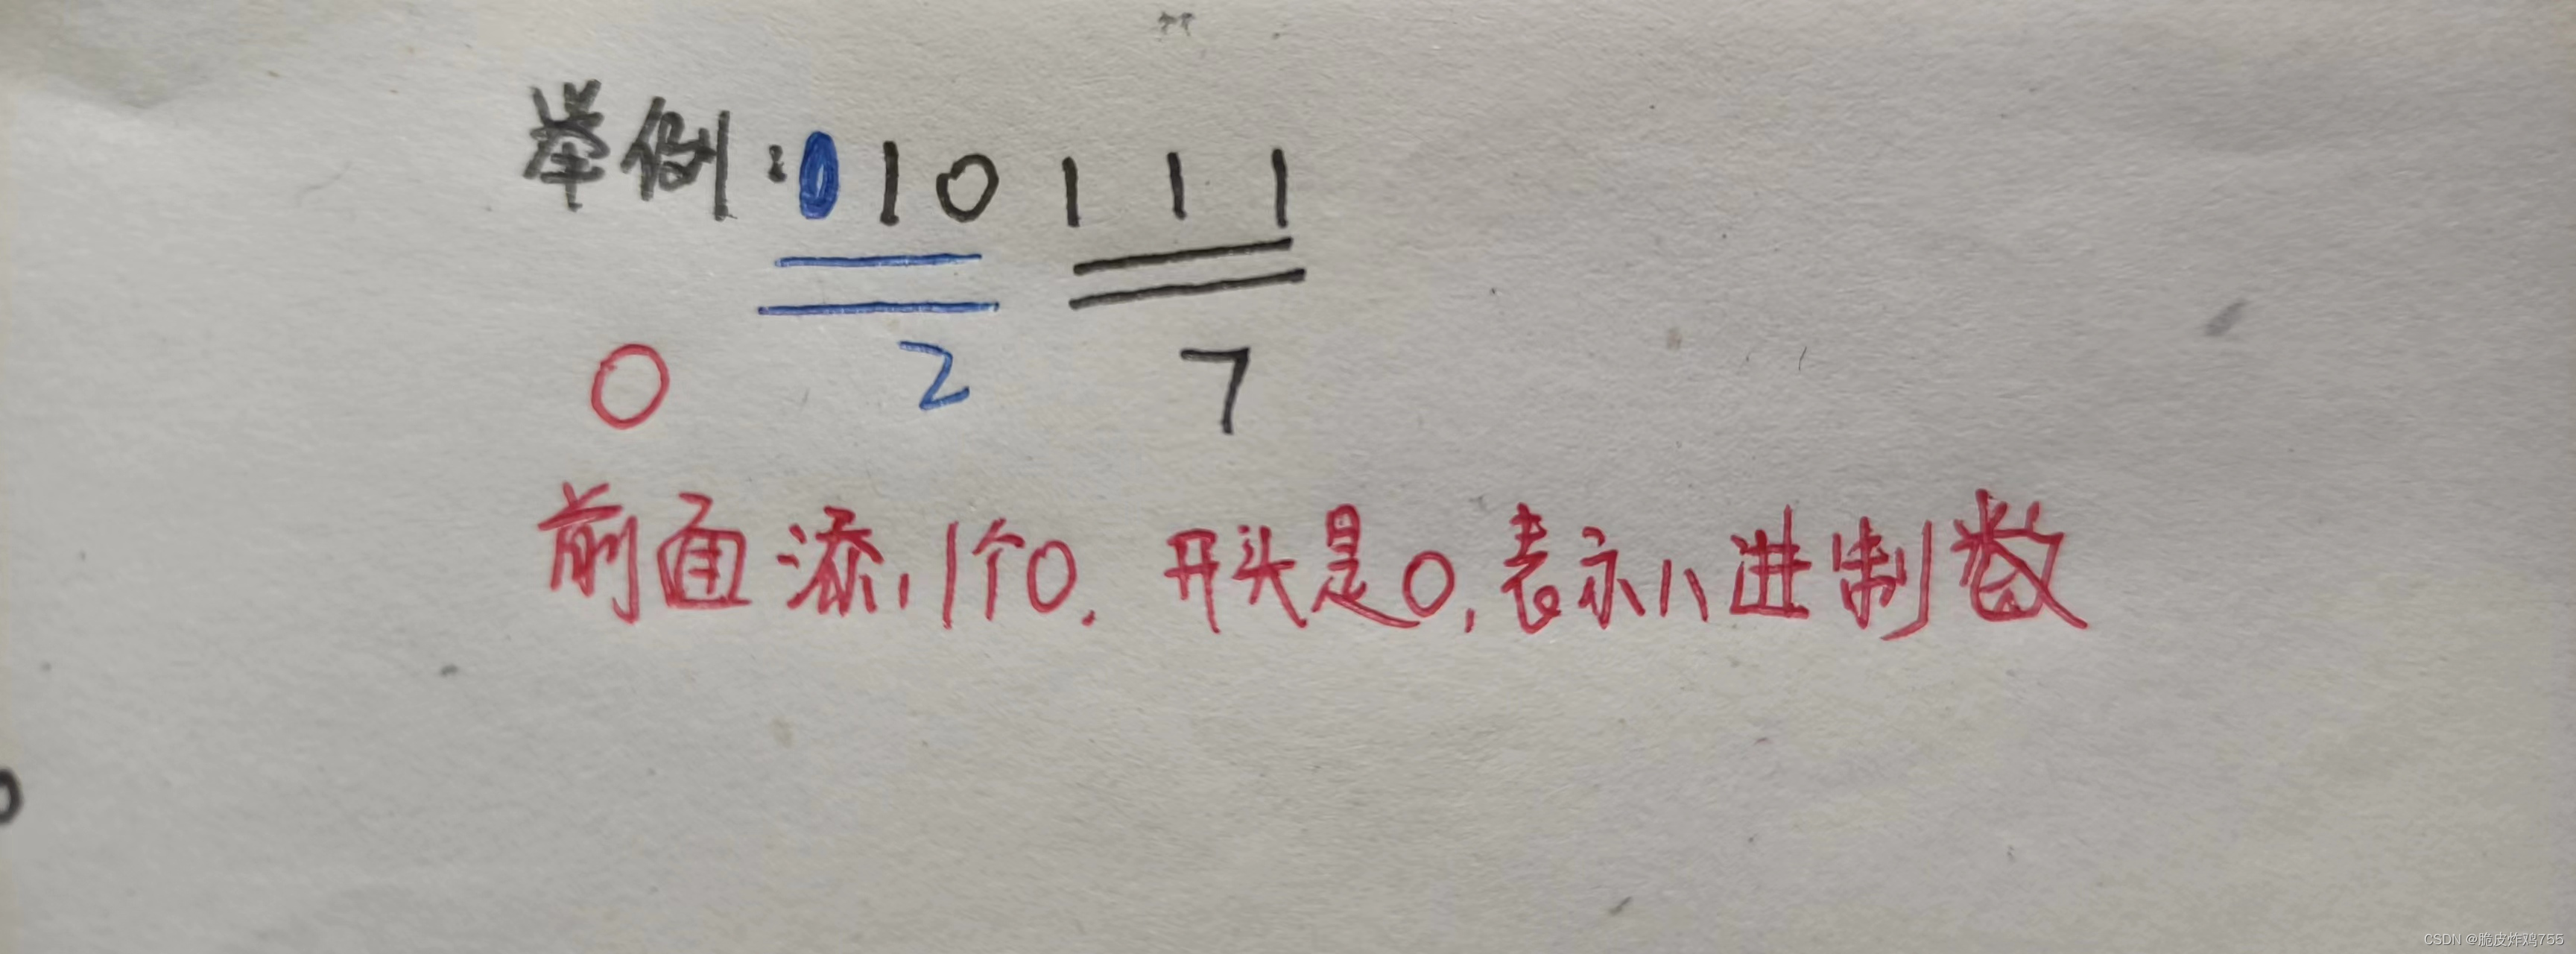 举例:010111
0 2 7
前面添1个0. 开头是0,表示八进制数
CSDN @脆皮炸鸡755